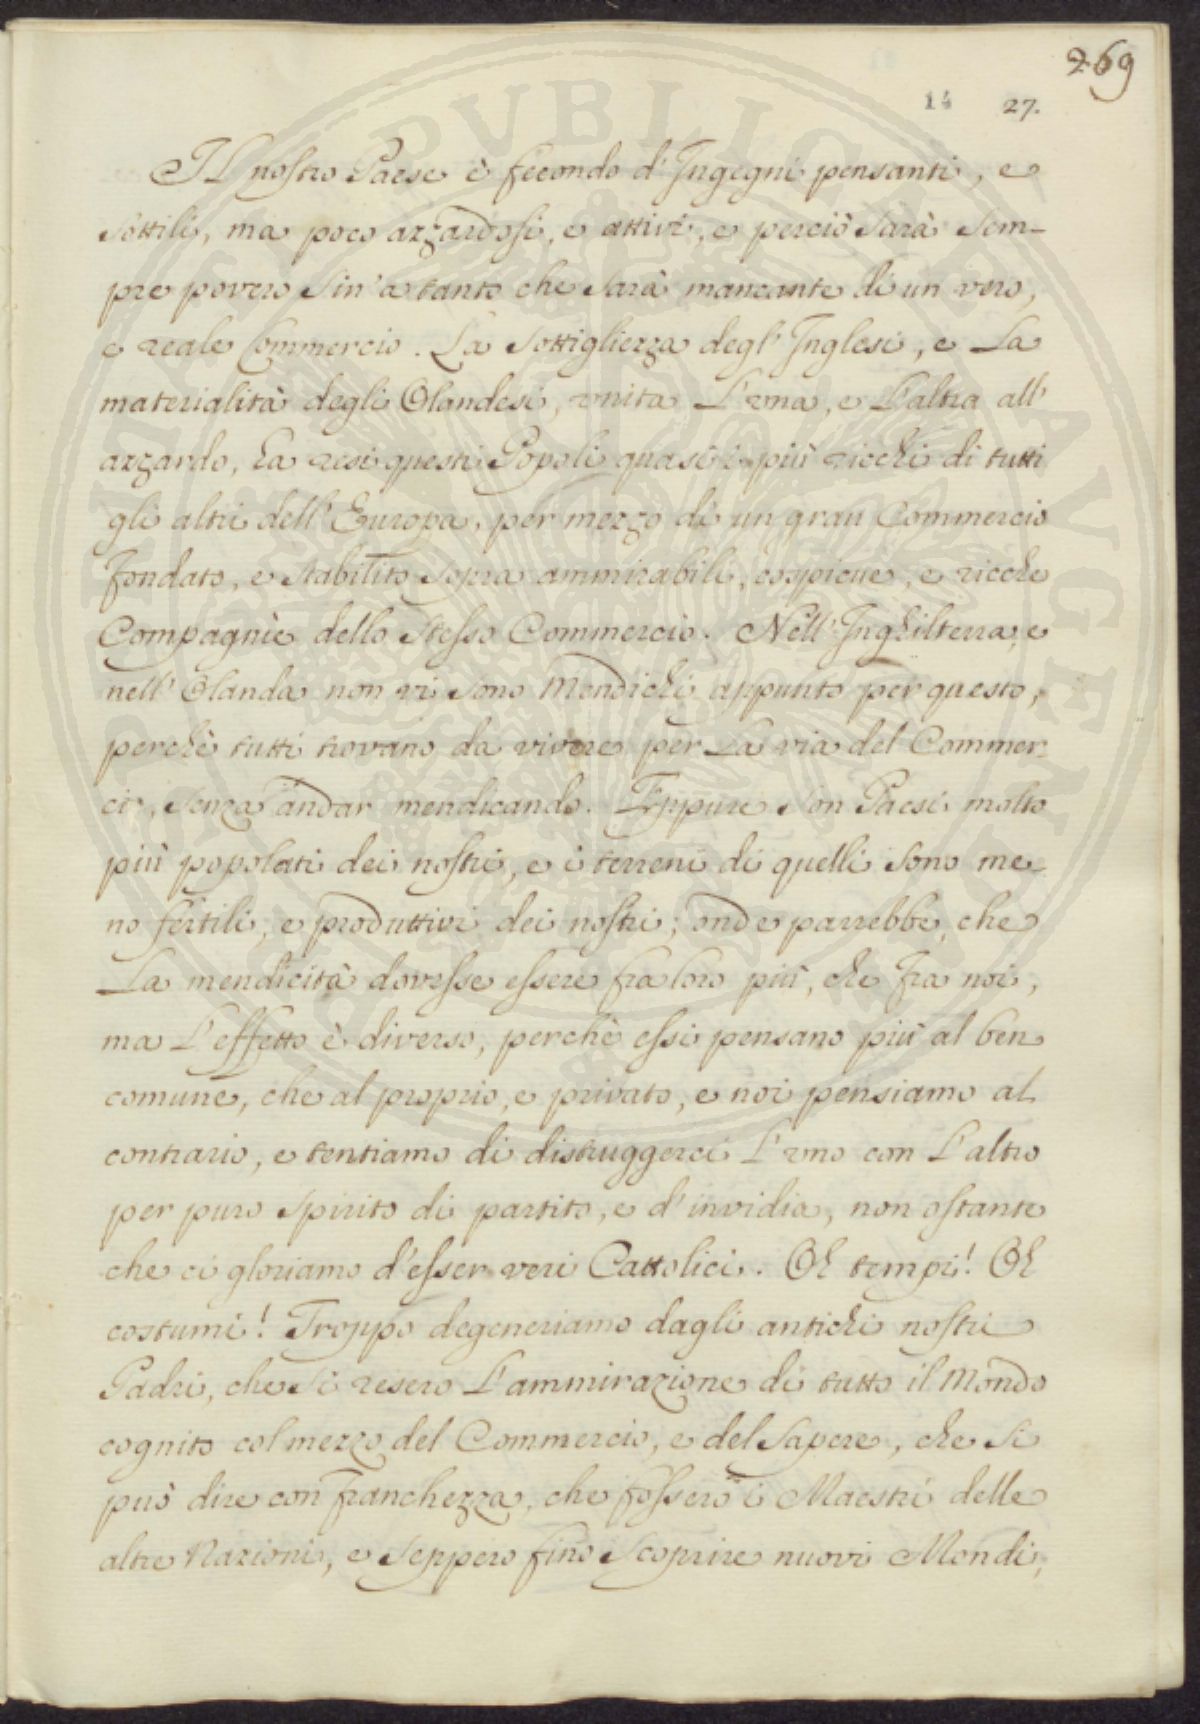 269
14 27.
Il nostro Paese è fecondo d'Ingegni pensanti, e
sottili, ma poco azzardosi, e attivi, e perciò sarà sem-
pre povero sin'a tanto che sarà mancante di un vero,
e reale Commercio. La sottigliezza degl'Inglesi, e la
materialità degli Olandesi, unita l'una, e l'altra all'
azzardo, ha resi questi Popoli quasi i più ricchi di tutti
gli altri dell'Europa, per mezzo di un gran Commercio
fondato, e stabilito sopra ammirabili, cospicue, e ricche
Compagnie dello stesso Commercio. Nell'Inghilterra, e
nell'Olanda non vi sono Mendichi appunto per questo,
perchè tutti trovano da vivere per la via del Commer-
cio, senza andar mendicando. Eppure son Paesi molto
più popolati dei nostri, e i terreni di quelli sono me-
no fertili, e produttivi dei nostri; onde parrebbe, che
la mendicità dovesse essere fra loro più, che fra noi,
ma l'effetto è diverso, perchè essi pensano più al ben
comune, che al proprio, e privato, e noi pensiamo al
contrario, e tentiamo di distruggerci l'uno con l'altro
per puro spirito di partito, e d'invidia, non ostante
che ci gloriamo d'esser veri Cattolici. Oh tempi! Oh
costumi! Troppo degeneriamo dagli antichi nostri
Padri, che si resero l'ammirazione di tutto il Mondo
cognito col mezzo del Commercio, e del sapere, che si
può dire con franchezza, che fossero i Maestri delle
altre Nazioni, e seppero fino scoprire nuovi Mondi,